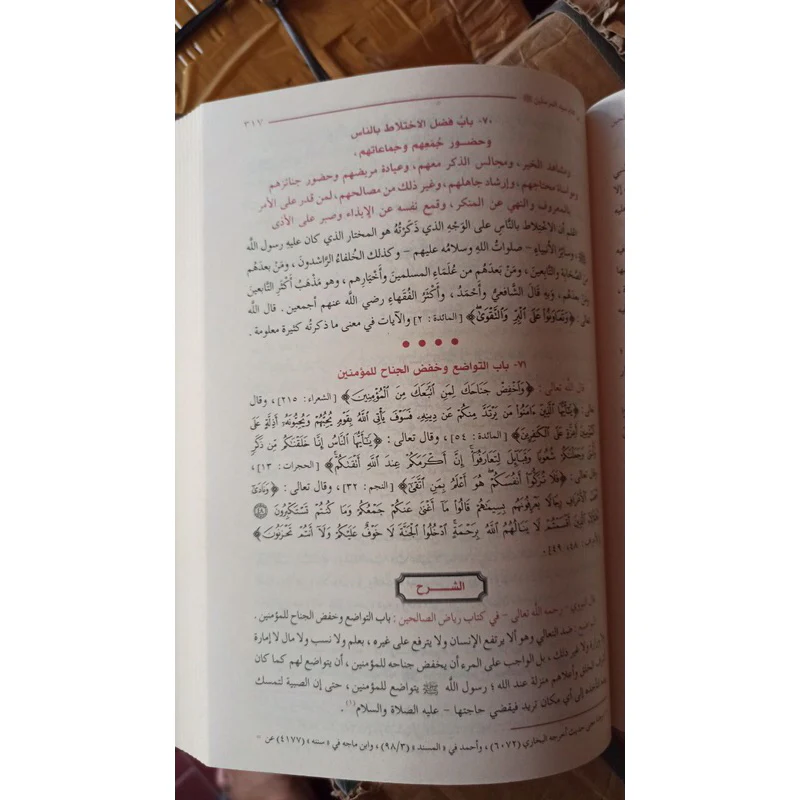 ٣١٧
٧٠- باب فضل الاختلاط بالناس
وحضور جُمَعِهم وجماعاتهم .
ومشاهد الخير ، ومجالس الذكر معهم ، وعيادة مريضهم وحضور جنائزهم
محتاجهم ، وإرشاد جاهلهم ، وغير ذلك من مصالحهم ، لمن قدر على الأمر
بالمعروف والنهي عن المنكر ، وقمع نفسه عن الإيذاء وصبر على الأذى
اعلم أن الاختلاط بالنَّاسِ على الوَجْهِ الذي ذَكَرْتُهُ هو المختار الذي كان عليهِ رسول اللَّه
ﷺ وسائرُ الأنبياءِ - صلواتُ اللهِ وسلامُه عليهم - وكذلك الخُلفاءُ الرَّاشدونَ ، ومَنْ بعدَهُم
من الصَّحابةِ والتَّابعينَ ، ومَنْ بَعدَهُم من عُلَمَاءِ المسلمينَ وأَخْيارِهم ، وهو مَذْهَبُ أَكْثَرِ التَّابعينَ
ومَنْ بعدَهُم ، وبِهِ قالَ الشَّافعيُّ وأَحْمَدُ ، وأَكْثَرُ الفُقَهاءِ رضي اللَّه عنهم أجمعين . قال اللَّه
تعالى : ﴿وَتَعَاوَنُوا۟ عَلَى ٱلْبِرِّ وَٱلتَّقْوَىٰ﴾ [المائدة : ٢] والآيات في معنى ما ذكرتُه كثيرة معلومة .
٧١- باب التواضع وخفض الجناح للمؤمنين
قال اللَّه تعالى : ﴿وَٱخْفِضْ جَنَاحَكَ لِمَنِ ٱتَّبَعَكَ مِنَ ٱلْمُؤْمِنِينَ﴾ [الشعراء : ٢١٥] ، وقال
تعالى : ﴿يَٰٓأَيُّهَا ٱلَّذِينَ ءَامَنُوا۟ مَن يَرْتَدَّ مِنكُمْ عَن دِينِهِۦ فَسَوْفَ يَأْتِى ٱللَّهُ بِقَوْمٍ يُحِبُّهُمْ وَيُحِبُّونَهُۥٓ أَذِلَّةٍ عَلَى
ٱلْمُؤْمِنِينَ أَعِزَّةٍ عَلَى ٱلْكَٰفِرِينَ﴾ [المائدة : ٥٤] ، وقال تعالى : ﴿يَٰٓأَيُّهَا ٱلنَّاسُ إِنَّا خَلَقْنَٰكُم مِّن ذَكَرٍ
وَأُنثَىٰ وَجَعَلْنَٰكُمْ شُعُوبًا وَقَبَآئِلَ لِتَعَارَفُوٓا۟ إِنَّ أَكْرَمَكُمْ عِندَ ٱللَّهِ أَتْقَىٰكُمْ﴾ [الحجرات : ١٣] ،
تعالى : ﴿فَلَا تُزَكُّوٓا۟ أَنفُسَكُمْ هُوَ أَعْلَمُ بِمَنِ ٱتَّقَىٰٓ﴾ [النجم : ٣٢] ، وقال تعالى : ﴿وَنَادَىٰٓ
أَصْحَٰبُ ٱلْأَعْرَافِ رِجَالًا يَعْرِفُونَهُم بِسِيمَىٰهُمْ قَالُوا۟ مَآ أَغْنَىٰ عَنكُمْ جَمْعُكُمْ وَمَا كُنتُمْ تَسْتَكْبِرُونَ ٤٨
ٱلَّذِينَ أَقْسَمْتُمْ لَا يَنَالُهُمُ ٱللَّهُ بِرَحْمَةٍ ٱدْخُلُوا۟ ٱلْجَنَّةَ لَا خَوْفٌ عَلَيْكُمْ وَلَآ أَنتُمْ تَحْزَنُونَ﴾
٤٨، ٤٩] .
الشرح
قال النووي - رحمه اللَّه تعالى - في كتاب رياض الصالحين : باب التواضع وخفض الجناح للمؤمنين .
التواضع : ضد التعالي وهو ألا يرتفع الإنسان ولا يترفع على غيره ، بعلم ولا نسب ولا مال لا إمارة
ولا وزارة ولا غير ذلك ، بل الواجب على المرء أن يخفض جناحه للمؤمنين ، أن يتواضع لهم كما كان
أشرف الخلق وأعلاهم منزلة عند الله ؛ رسول اللَّه ﷺ يتواضع للمؤمنين ، حتى إن الصبية لتمسك
إلى أي مكان تريد فيقضي حاجتها - عليه الصلاة والسلام(١) .
حديث أخرجه البخاري (٦٠٧٢) ، وأحمد في « المسند » (٩٨/٣) ، وابن ماجه في « سننه » (٤١٧٧) عن